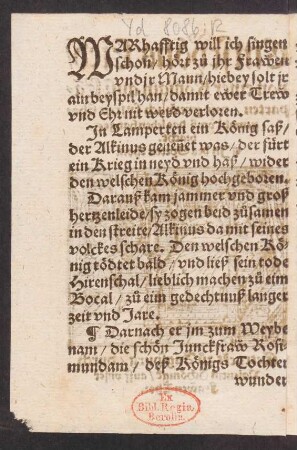 Yd 8086. R
WARhafftig will ich singen
schon / hört zu ihr Frawen
vnd jr Mann / hiebey solt jr
ain beyspil han / damit ewer Trew
vnd Ehr nit werd verloren.
In Lamperten ein König saß /
der Alkinus genenet was / der fürt
ein Krieg in neyd vnd haß / wider
den welschen König hochgeboren.
Darauß kam jammer vnd groß
hertzenleide / sy zogen beid züsamen
in den streite / Alkinus da mit seines
volckes schare. Den welschen Kö-
nig tödtet bald / vnd ließ sein tode
Hirenschal / lieblich machen zü eim
Bocal / zü eim gedechtnuß langer
zeit vnd Jare.
¶ Darnach er jm zum Weybe
nam / die schön Junckfraw Rosi-
mundam / deß Königs Tochter
wunder
Ex
Bibl. Regia
Berolin.